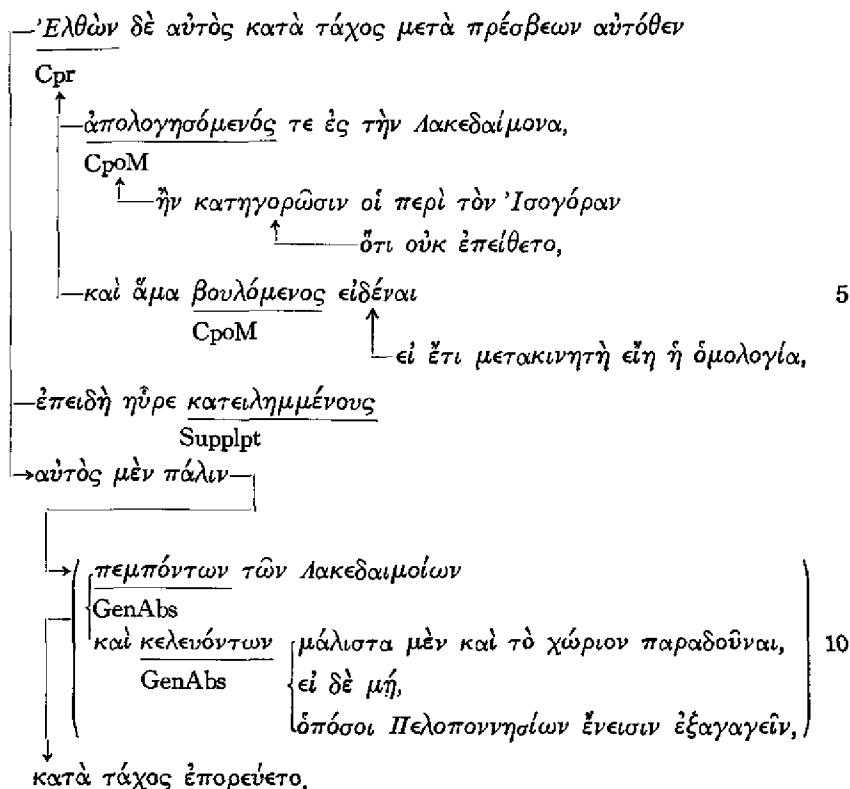 Ἐλθὼν δὲ αὐτὸς κατὰ τάχος μετὰ πρέσβεων αὐτόθεν
Cpr
ἀπολογησόμενός τε ἐς τὴν Λακεδαίμονα,
CpoM
ἢν κατηγορῶσιν οἱ περὶ τὸν Ἰσογόραν
ὅτι οὐκ ἐπείθετο,
καὶ ἅμα βουλόμενος εἰδέναι 5
CpoM
εἰ ἔτι μετακινητὴ εἴη ἡ ὁμολογία,
ἐπειδὴ ηὗρε κατειλημμένους
Supplpt
αὐτὸς μὲν πάλιν
πεμπόντων τῶν Λακεδαιμοίων
GenAbs
καὶ κελευόντων μάλιστα μὲν καὶ τὸ χώριον παραδοῦναι, 10
GenAbs εἰ δὲ μή,
ὁπόσοι Πελοποννησίων ἔνεισιν ἐξαγαγεῖν,
κατὰ τάχος ἐπορεύετο.